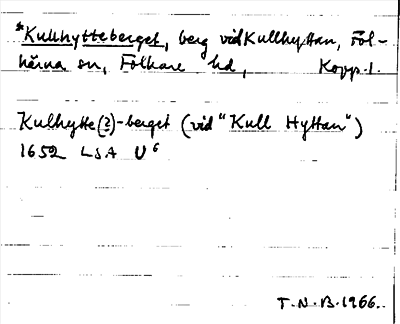 *Kullhytteberget, berg vid Kullhyttan, Fol-
kärna sn, Folkare hd, Kopp. l.
Kulhytte(?)-berget (vid "Kull Hyttan")
1652 LSA U⁶
T.N.B. 1966.